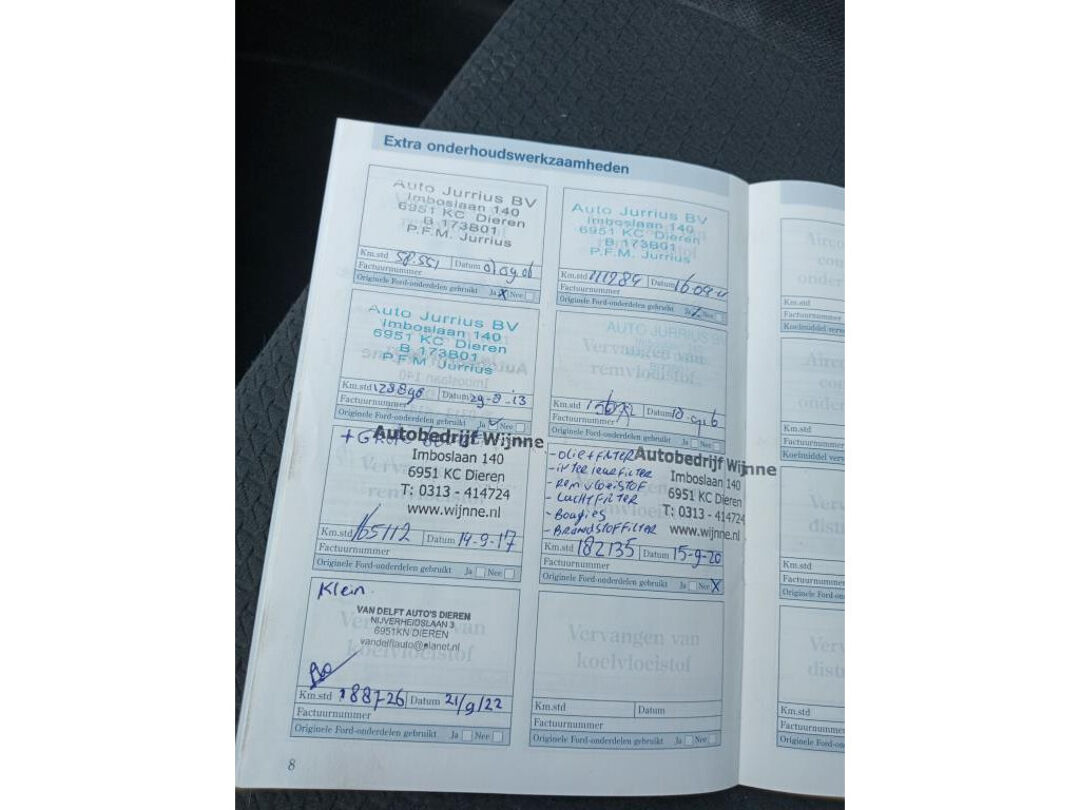 Extra onderhoudswerkzaamheden
Auto Jurrius BV
Imboslaan 140
6951 KC Dieren
B 173B01
P.F.M. Jurrius
Km.std 58551 Datum
Factuurnummer
Originele Ford-onderdelen gebruikt Ja X Nee
Auto Jurrius BV
Imboslaan 140
6951 KC Dieren
B 173B01
P.F.M. Jurrius
Km.std 111984 Datum
Factuurnummer
Originele Ford-onderdelen gebruikt Ja Nee
Auto Jurrius BV
Imboslaan 140
6951 KC Dieren
B 173B01
P.F.M Jurrius
Km.std 128898 Datum 29-8-13
Factuurnummer
Originele Ford-onderdelen gebruikt Ja Nee
AUTO JURRIUS BV
Vervangen van
remvloeistof
Km.std Datum
Factuurnummer
Originele Ford-onderdelen gebruikt Ja Nee
Autobedrijf Wijnne
Imboslaan 140
6951 KC Dieren
T: 0313 - 414724
www.wijnne.nl
Km.std 165112 Datum 14-9-17
Factuurnummer
Originele Ford-onderdelen gebruikt Ja Nee
- OLIE + FILTER
- interieurFILTER
- Remvloeistof
- LuchtFILTER
- Bougies
- BRANDSTOFFILTER
Autobedrijf Wijnne
Imboslaan 140
6951 KC Dieren
T: 0313 - 414724
www.wijnne.nl
Km.std 182135 Datum 15-9-20
Factuurnummer
Originele Ford-onderdelen gebruikt Ja Nee X
Klein
VAN DELFT AUTO'S DIEREN
NIJVERHEIDSLAAN 3
6951KN DIEREN
vandelftauto@planet.nl
Km.std 188726 Datum 21/9/22
Factuurnummer
Originele Ford-onderdelen gebruikt Ja Nee
Vervangen van
koelvloeistof
Km.std Datum
Factuurnummer
Originele Ford-onderdelen gebruikt Ja Nee
8
Km.std
Factuurnummer
Koelmiddel
Km.std
Factuurnummer
Koelmiddel
Km.std
Factuurnummer
Originele Ford
Km.std
Factuurnummer
Originele Ford